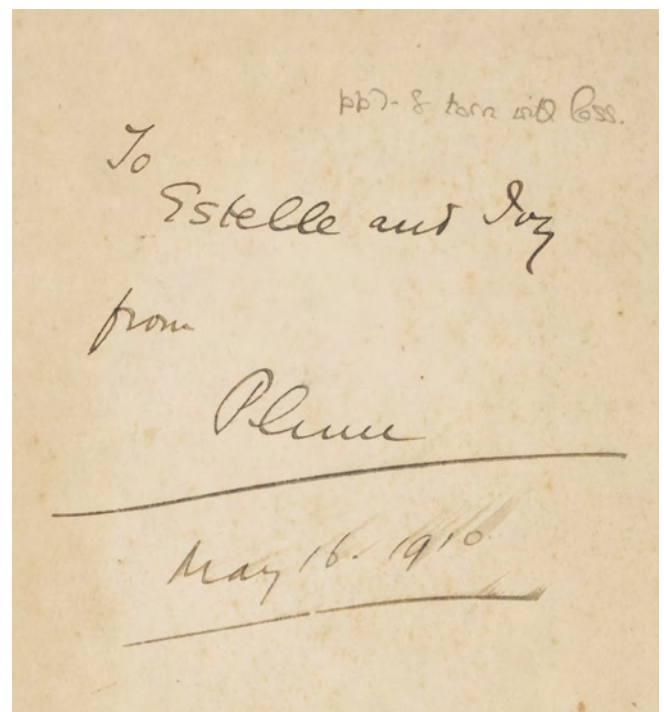 pp7-8 torn with loss.
To
Estelle and Joy
from
Plumie
May 16. 1910